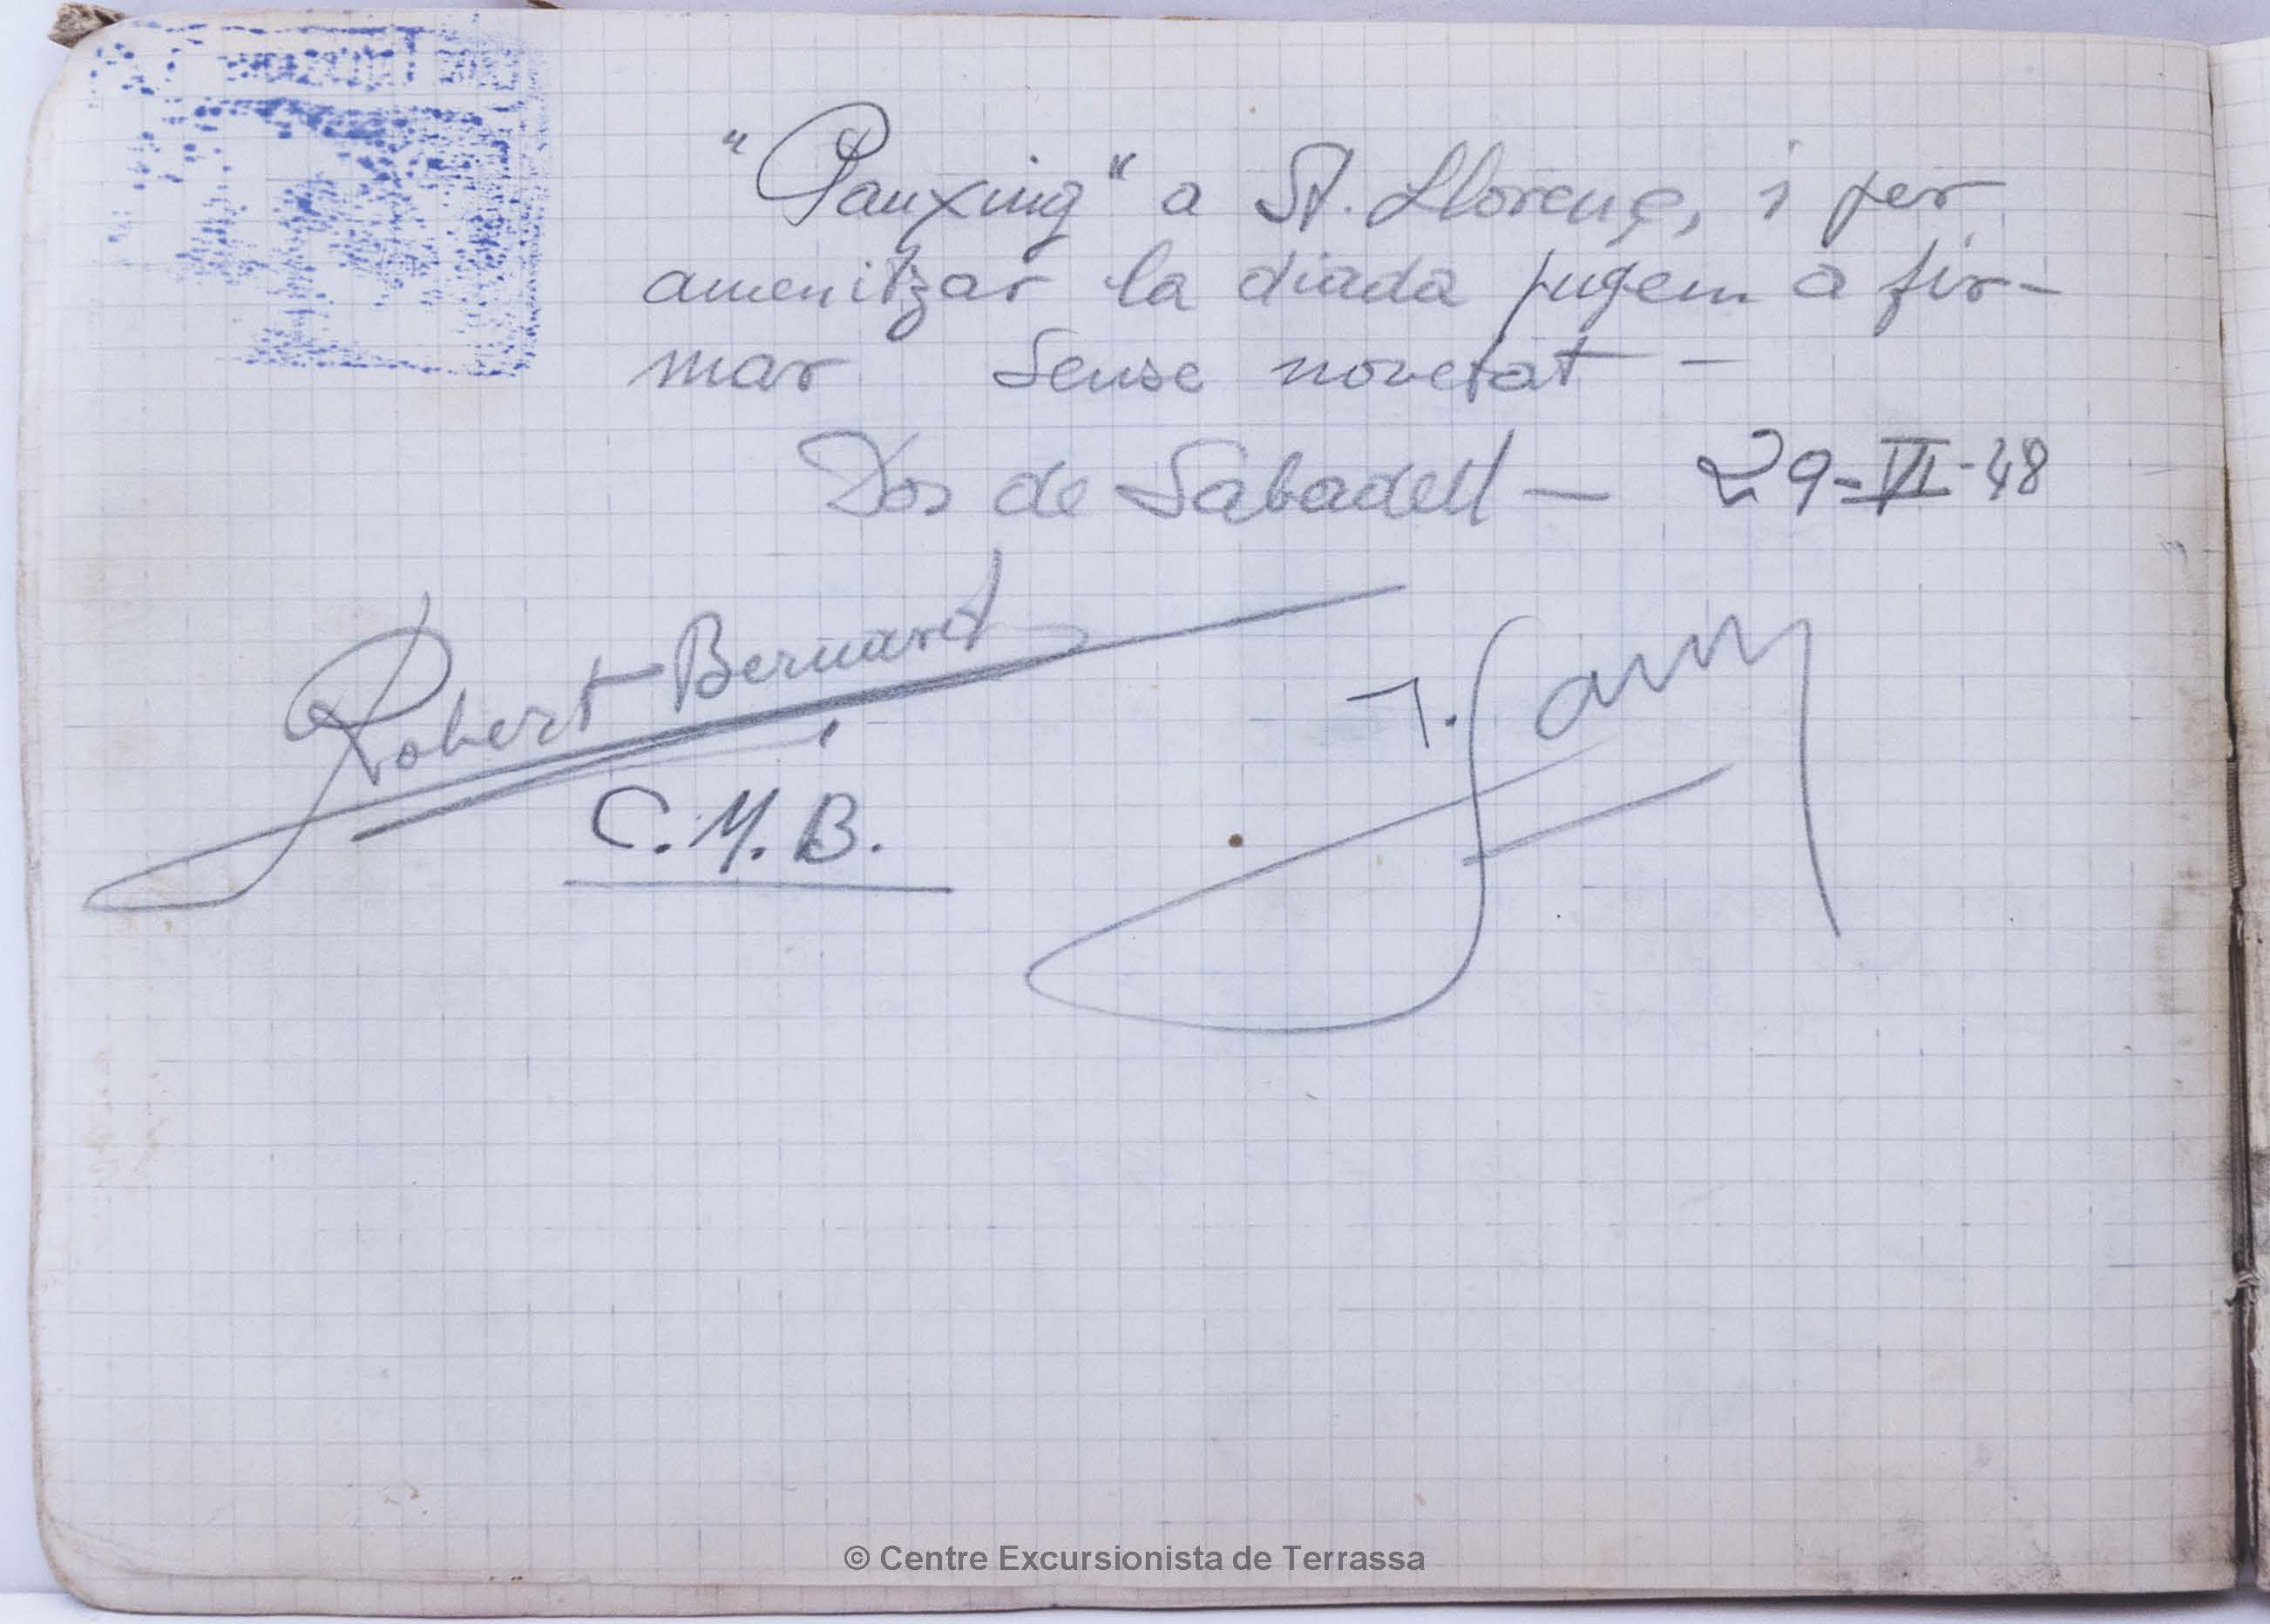 "Pauxing" a St. Llorenç, i per
amenitzar la diada pugem a fir-
mar Sense novetat —
Dos de Sabadell — 29-VI-48
Robert Bernard
C.M.B.
J.
© Centre Excursionista de Terrassa